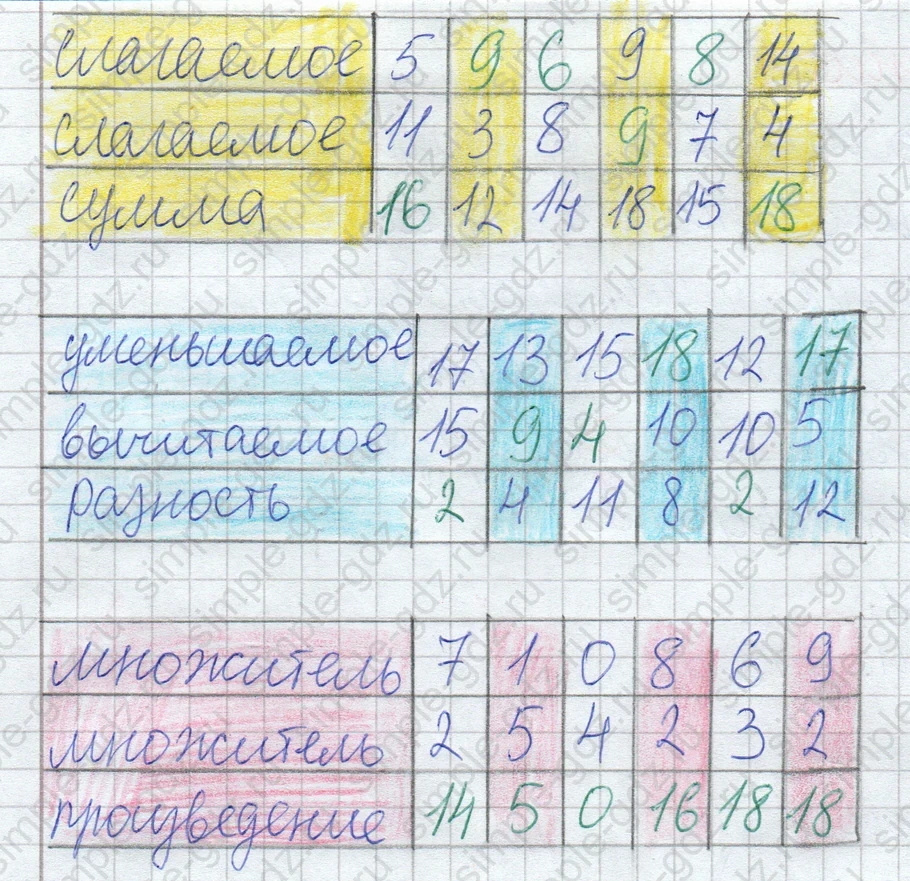 слагаемое 5 9 6 9 8 14
слагаемое 11 3 8 9 7 4
сумма 16 12 14 18 15 18
уменьшаемое 17 13 15 18 12 17
вычитаемое 15 9 4 10 10 5
разность 2 4 11 8 2 12
множитель 7 1 0 8 6 9
множитель 2 5 4 2 3 2
произведение 14 5 0 16 18 18
simple-gdz.ru